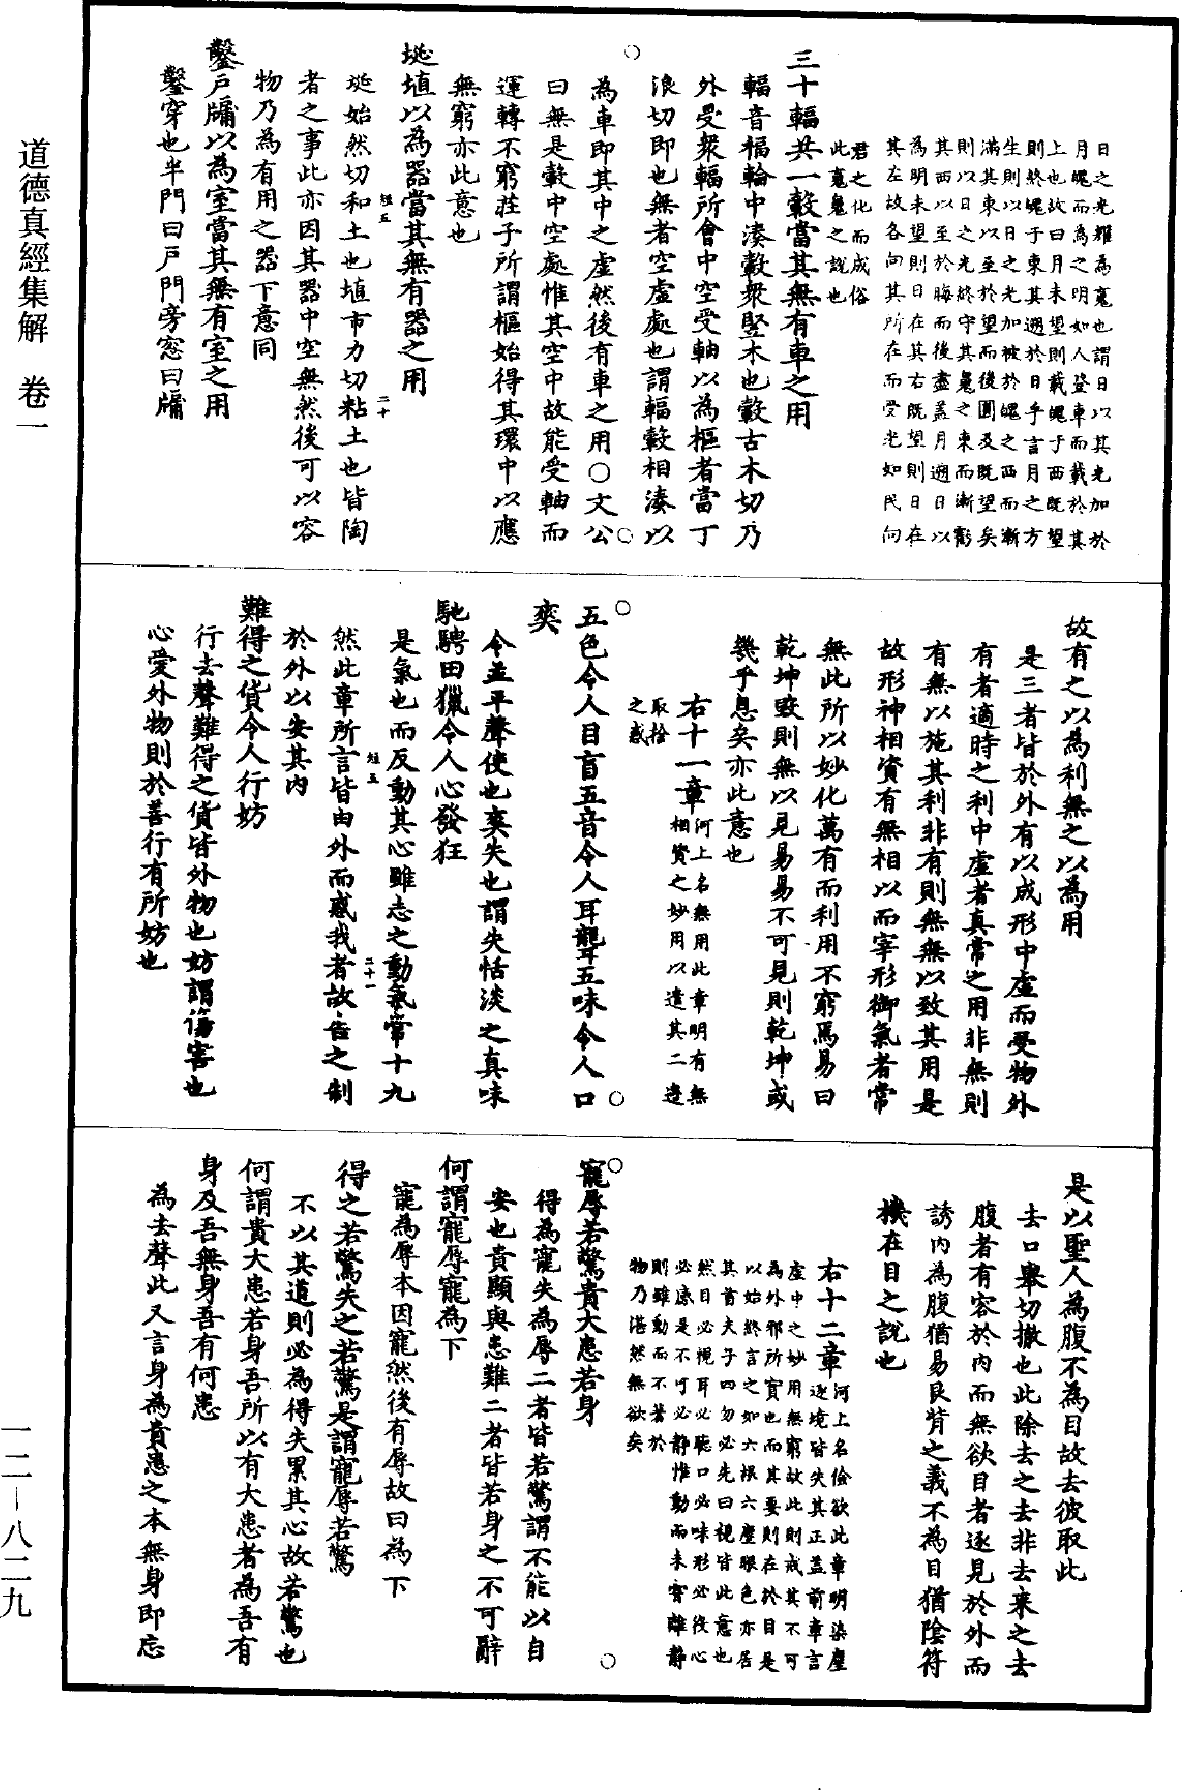 道德真經集解　卷一
日之光耀為䰟也謂日以其光加於
月魄而為之明如人登車而載於其
上也故曰月未望則載魄于西既望
則終魄于東其遡於日乎言月之方
生則以日之光加被於魄之西而漸
滿其東以至於望而後圓及既望矣
則以日之光終守其䰟之東而漸虧
其西以至於晦而後盡蓋月遡日以
為明未望則日在其右既望則日在
其左故各向其所在而受光如民向
君之化而成俗
此䰟魄之説也
三十輻共一轂當其無有車之用
輻音福輪中湊轂衆竪木也轂古木切乃
外受衆輻所會中空受軸以為樞者當丁
浪切即也無者空虛處也謂輻轂相湊以
為車即其中之虛然後有車之用○文公
曰無是轂中空處惟其空中故能受軸而
運轉不窮莊子所謂樞始得其環中以應
無窮亦此意也
埏埴以為器當其無有器之用
埏始然切和土也埴市力切粘土也皆陶
者之事此亦因其器中空無然後可以容
物乃為有用之器下意同
鑿戶牖以為室當其無有室之用
鑿穿也半門曰戶門旁窓曰牖
故有之以為利無之以為用
是三者皆於外有以成形中虛而受物外
有者適時之利中虛者真常之用非無則
有無以施其利非有則無無以致其用是
故形神相資有無相以而宰形御氣者常
無此所以妙化萬有而利用不窮焉易曰
乾坤毀則無以見易易不可見則乾坤或
幾乎息矣亦此意也
右十一章河上名無用此章明有無
相資之妙用以遣其二邊
取捨
之惑
五色令人目盲五音令人耳聾五味令人口
爽
令並平聲使也爽失也謂失恬淡之真味
馳騁田獵令人心發狂
是氣也而反動其心雖志之動氣常十九
然此章所言皆由外而惑我者故告之制
於外以安其内
難得之貨令人行妨
行去聲難得之貨皆外物也妨謂傷害也
心愛外物則於善行有所妨也
是以聖人為腹不為目故去彼取此
去口舉切撤也此除去之去非去來之去
腹者有容於内而無欲目者逐見於外而
誘内為腹猶易艮背之義不為目猶陰符
機在目之說也
右十二章河上名儉欲此章明染塵
逐境皆失其正蓋前章言
虛中之妙用無窮故此則戒其不可
為外邪所實也而其要則在於目是
以始終言之如六根六塵眼色亦居
其首夫子四勿必先曰視皆此意也
然目必視耳必聽口必味形必役心
必應是不可必靜惟動而未嘗離靜
則雖動而不著於
物乃湛然無欲矣
寵辱若驚貴大患若身
得為寵失為辱二者皆若驚謂不能以自
安也貴顯與患難二者皆若身之不可辭
何謂寵辱寵為下
寵為辱本因寵然後有辱故曰為下
得之若驚失之若驚是謂寵辱若驚
不以其道則必為得失累其心故若驚也
何謂貴大患若身吾所以有大患者為吾有
身及吾無身吾有何患
為去聲此又言身為貴患之本無身即忘
一二—八二九